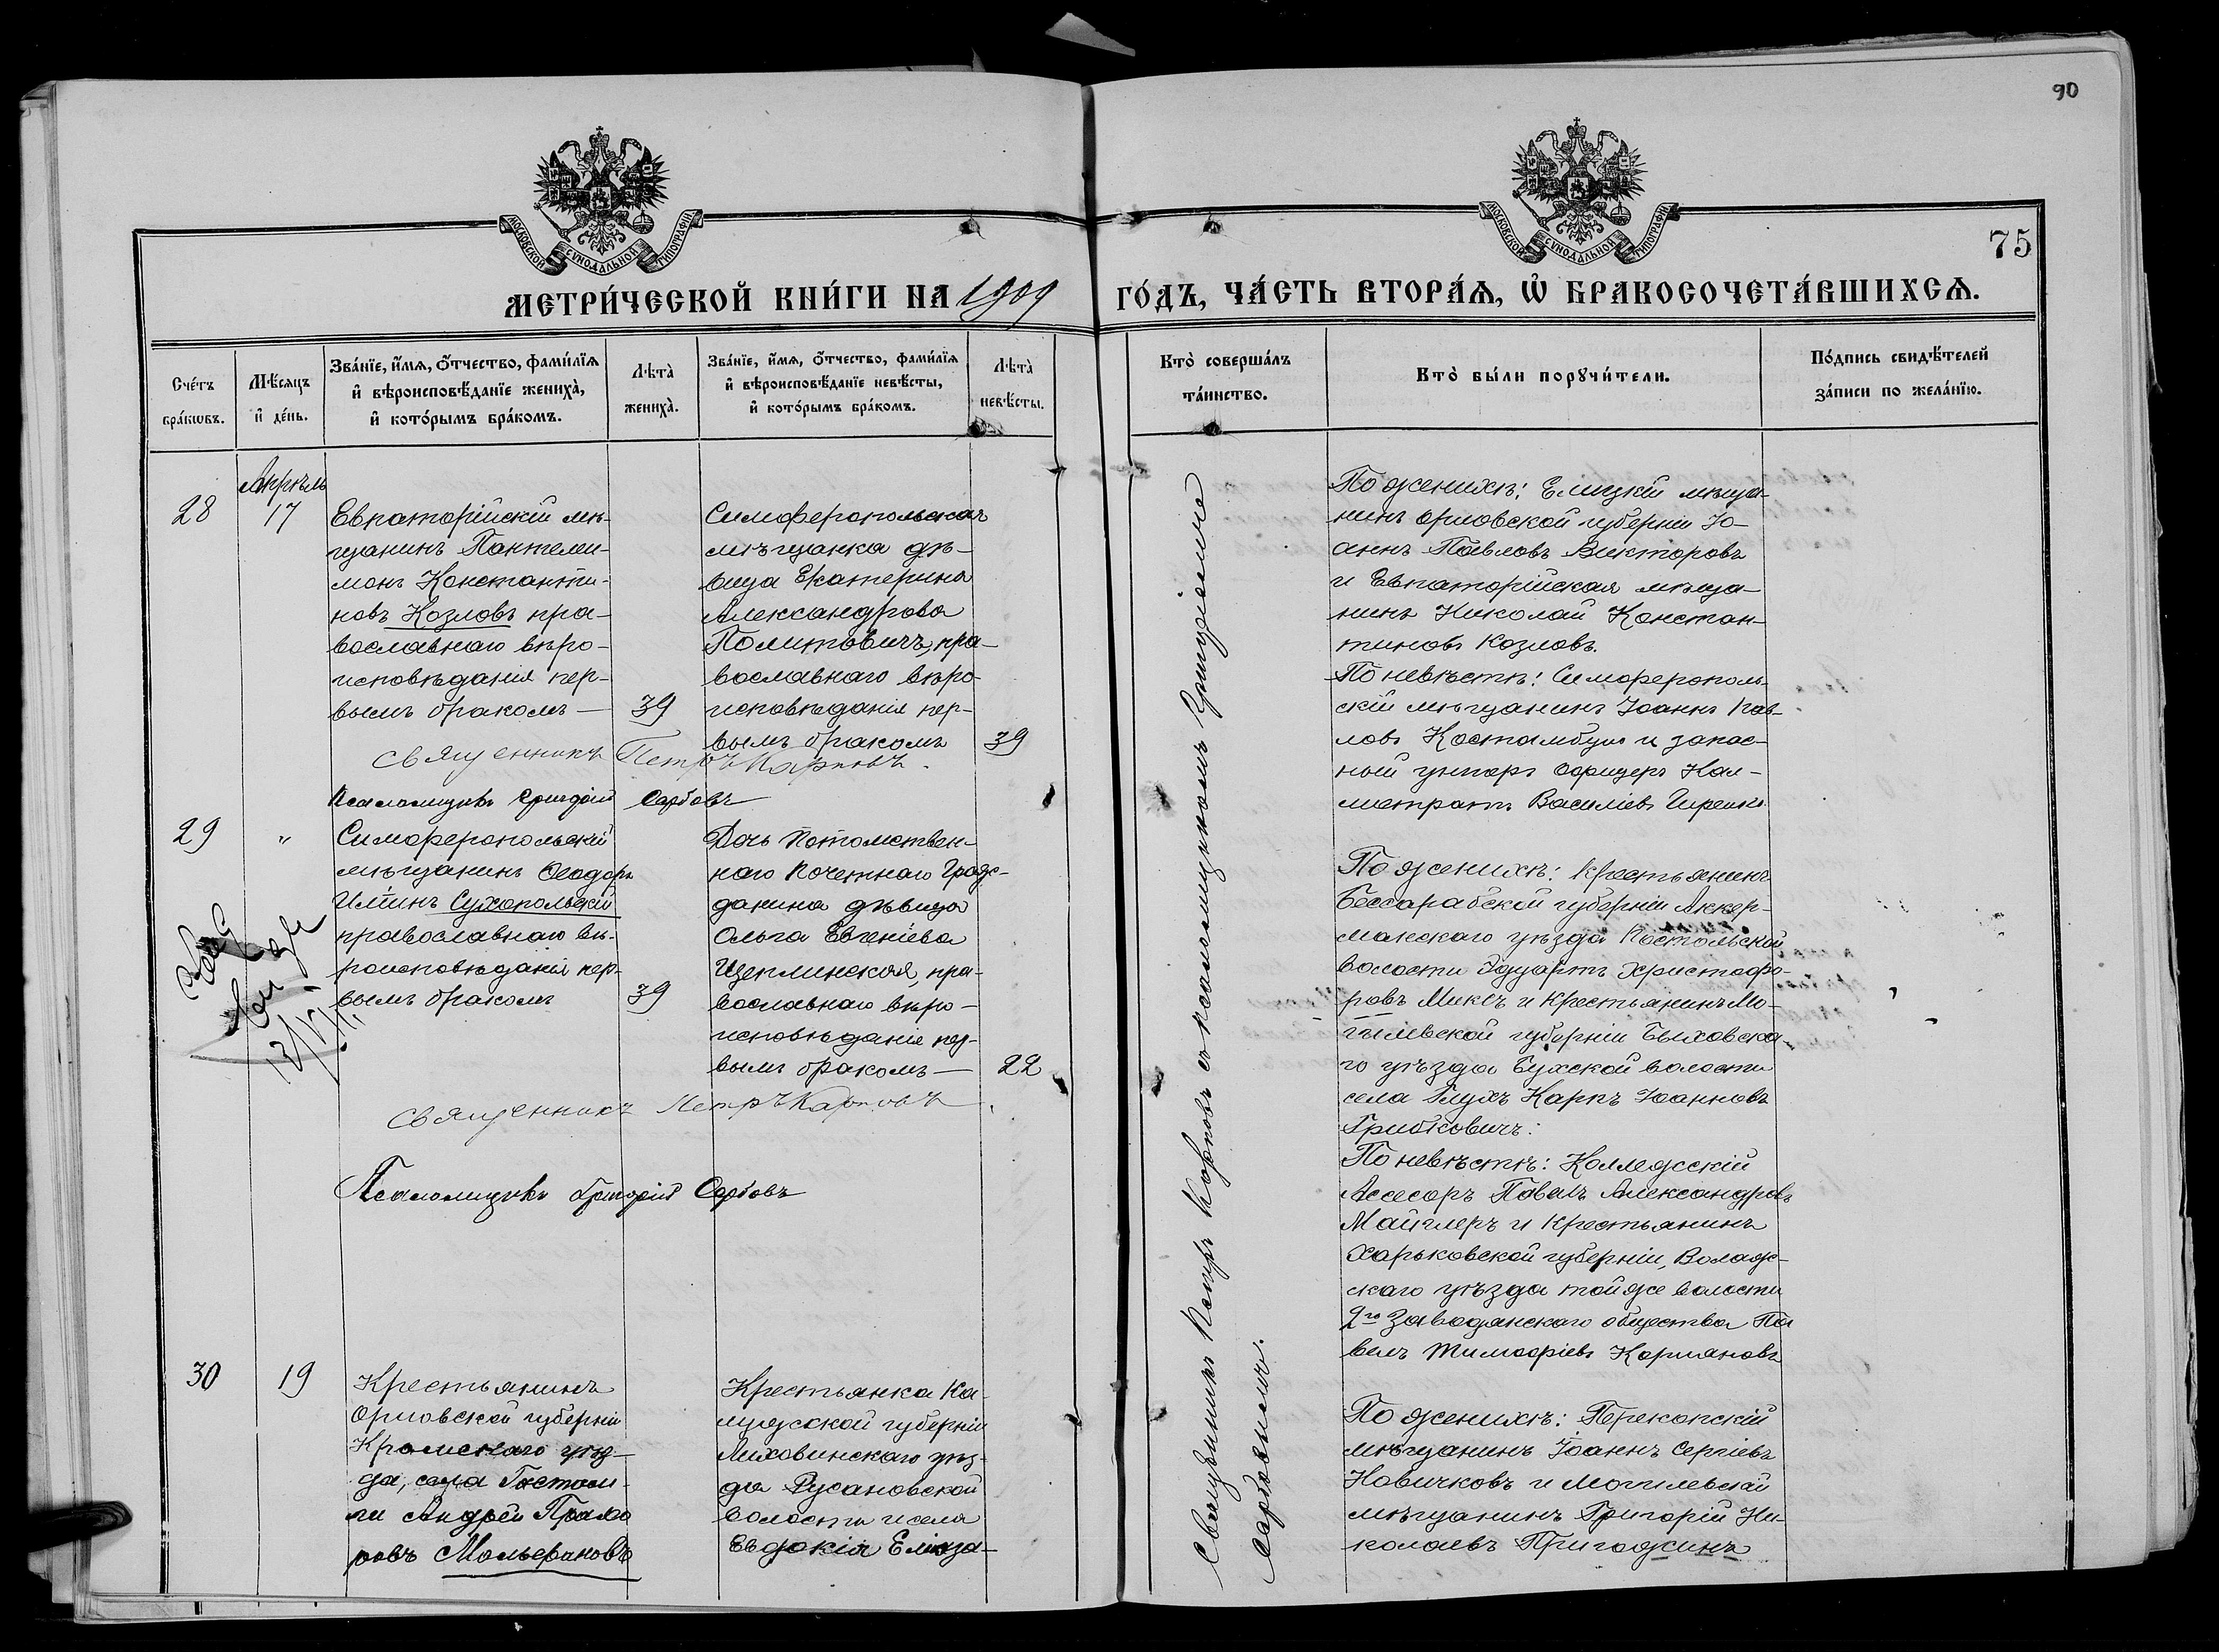 90
75
МОСКОВСКОЙ СѴНОДАЛЬНОЙ ТИПОГРАФІИ
МОСКОВСКОЙ СѴНОДАЛЬНОЙ ТИПОГРАФІИ
МЕТРИ́ЧЕСКОЙ КНИ́ГИ НА 1909 ГО́ДЪ, ЧА́СТЬ ВТОРА́Ѧ, Ѡ҆ БРАКОСОЧЕТА́ВШИХСѦ.
Сче́тъ
бра́кѡвъ.
Мѣ́сяцъ
и҆ де́нь.
Зва́нїе, и҆́мѧ, ѻ҆́тчество, фами́лїѧ
и҆ вѣроисповѣ́данїе жениха̀,
и҆ кото́рымъ бра́комъ.
Лѣта̀
жениха̀.
Зва́нїе, и҆́мѧ, ѻ҆́тчество, фами́лїѧ
и҆ вѣроисповѣ́данїе невѣ́сты,
и҆ кото́рымъ бра́комъ.
Лѣта̀
невѣ́сты.
Кто̀ соверша́лъ
та́инство.
Кто̀ бы́ли порꙋчи́тели.
По́дпись свидѣ́телей
за́писи по жела́нїю.
28
Апрѣль
17
Евпаторійскій мѣ-
щанинъ Пантелеи-
монъ Константи-
новъ Козловъ пра-
вославнаго вѣро-
исповѣданія пер-
вымъ бракомъ —
39
Симферопольская
мѣщанка дѣ-
вица Екатерина
Александрова
Политовичъ, пра-
вославнаго вѣро-
исповѣданія пер-
вымъ бракомъ
39
Священникъ Петръ Карповъ.
Псаломщикъ Григорій Сарбовъ
По женихѣ: Елицкій мѣща-
нинъ Орловской губерніи Іо-
аннъ Павловъ Викторовъ
и Евпаторійская мѣща-
нинъ Николай Констан-
тиновъ Козловъ.
По невѣстѣ: Симферополь-
скій мѣщанинъ Іоаннъ Пав-
ловъ Костамбулъ и запас-
ный унтеръ Офицеръ Кал-
листратъ Василіевъ
29
"
Симферопольскій
мѣщанинъ Ѳеодоръ
Ильинъ Сухопольскій
православнаго вѣ-
роисповѣданія пер-
вымъ бракомъ
39
Дочь потомствен-
наго почетнаго Граж-
данина дѣвица
Ольга Евгеніева
Щеплинская, пра-
вославнаго вѣро-
исповѣданія пер-
вымъ бракомъ —
22
Священникъ Петръ Карповъ
Псаломщикъ Григорій Сарбовъ
По женихѣ: Крестьянинъ
Бессарабской губерніи Аккер-
манскаго уѣзда
волости Эдуартъ Христофо-
ровъ Миксъ и Крестьянинъ Мо-
гилевской губерніи Быховска-
го уѣзда Бухской волости
села Глухъ Карпъ Іоанновъ
Грибковичъ:
По невѣстѣ: Коллежскій
Асесоръ Павелъ Александровъ
Майглеръ и Крестьянинъ
Харьковской губерніи,
скаго уѣзда той же волости
2го Заводянскаго общества Па
велъ Тимоѳіевъ
30
19
Крестьянинъ
Орловской губерніи
Кромскаго уѣз-
да, села Гостомли
Андрей Прохо
ровъ
Крестьянка Ка-
лужской губерніи
Лихвинскаго уѣз-
да Русановской
волости и села
Евдокія Елиза-
По женихѣ: Перекопскій
мѣщанинъ Іоаннъ Сергіевъ
Новичковъ и Могилевскій
мѣщанинъ Григорій Ни-
колаевъ Пригожинъ
Священникъ Петръ Карповъ съ псаломщикомъ Григоріемъ
Сарбовымъ.